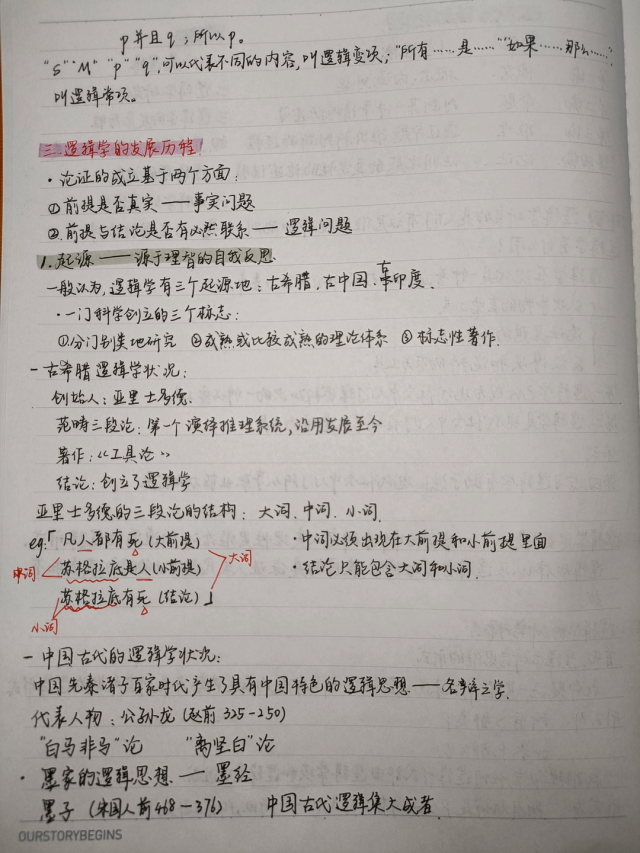 p并且q；所以p。
"S""M""p""q",可以代表不同的内容,叫逻辑变项；"所有……是……""如果……那么……",
叫逻辑常项。
三.逻辑学的发展历程!
·论证的成立基于两个方面:
①前提是否真实——事实问题
②.前提与结论是否有必然联系——逻辑问题
1.起源——源于理智的自我反思.
一般认为,逻辑学有三个起源地:古希腊,古中国.古印度.
·一门科学创立的三个标志:
①分门别类地研究 ②成熟或比较成熟的理论体系 ③标志性著作.
-古希腊逻辑学状况:
创始人:亚里士多德.
范畴三段论:第一个演绎推理系统,沿用发展至今
著作:《工具论》
结论:创立了逻辑学
亚里士多德的三段论的结构:大词.中词.小词.
eg.「凡人都有死(大前提) ·中词必须出现在大前提和小前提里面
大词
中词 苏格拉底是人(小前提) ·结论只能包含大词和小词.
苏格拉底有死(结论)」
小词
-中国古代的逻辑学状况:
中国先秦诸子百家时代产生了具有中国特色的逻辑思想——名辩之学.
代表人物:公孙龙(赵前325-250)
"白马非马"论 "离坚白"论
·墨家的逻辑思想——墨经
墨子(宋国人前468-376) 中国古代逻辑集大成者.
OURSTORYBEGINS